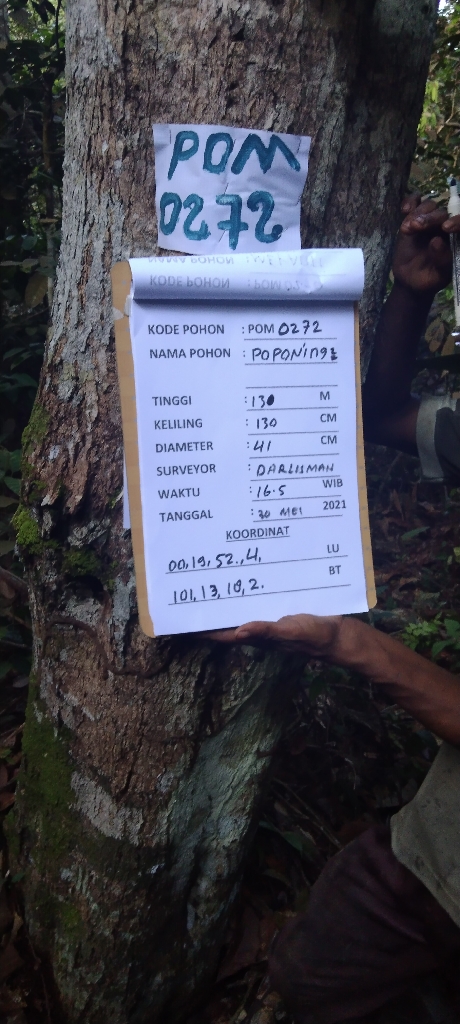 POM
0272
KODE POHON : POM 0272
NAMA POHON :
TINGGI : 130 M
KELILING : 130 CM
DIAMETER : 41 CM
SURVEYOR : DARLISMAN
WAKTU : 16.5 WIB
TANGGAL : 30 MEI 2021
KOORDINAT
00,19,52.,4, LU
101,13,18,2. BT